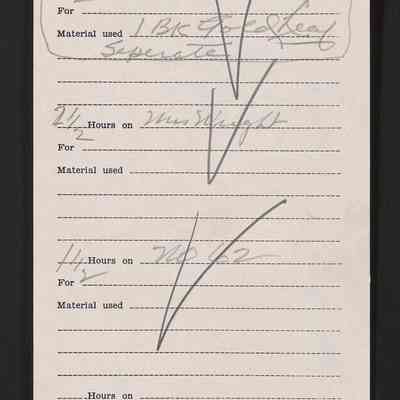 For
Material used 1 Bk Gold Leaf
Seperate
2 1/2 Hours on Mrs Wright
For
Material used
1 1/2 Hours on No 62
For
Material used
Hours on